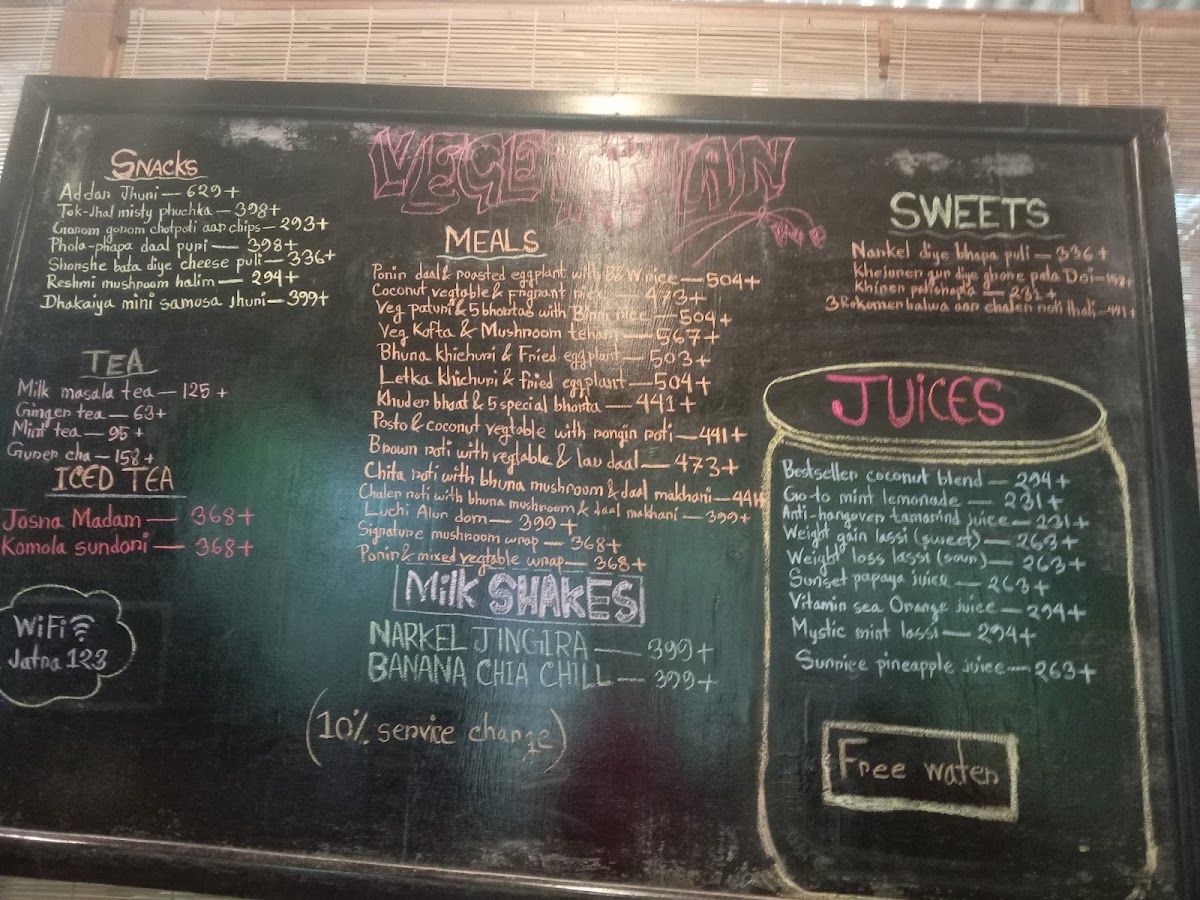 VEGETARIAN
SNACKS
Addar Jhuri — 629+
Tok-Jhal misty phuchka — 398+
Garom gorom chotpoti aar chips — 293+
Phola-phapa daal puri — 398+
Shorshe bata diye cheese puli — 336+
Reshmi mushroom halim — 294+
Dhakaiya mini samosa Jhuri — 399+
TEA
Milk masala tea — 125+
Ginger tea — 63+
Mint tea — 95+
Gurer cha — 158+
ICED TEA
Josna Madam — 368+
Komola sundori — 368+
WiFi
Jatra 123
MEALS
Ponir daal & roasted eggplant with BBW rice — 504+
Coconut vegtable & Frgrant rice — 473+
Veg paturi & 5 bhortas with Binni rice — 504+
Veg Kofta & Mushroom tehari — 567+
Bhuna khichuri & Fried eggplant — 503+
Letka khichuri & fried eggplant — 504+
Khuder bhaat & 5 special bhorta — 441+
Posto & coconut vegtable with rongin roti — 441+
Brown roti with vegtable & lau daal — 473+
Chita roti with bhuna mushroom & daal makhani — 441+
Chaler roti with bhuna mushroom & daal makhani — 399+
Luchi Alur dom — 399+
Signature mushroom wrap — 368+
Ponir & mixed vegtable wrap — 368+
Milk SHAKES
NARKEL JINGIRA — 399+
BANANA CHIA CHILL — 399+
(10% service charge)
SWEETS
Narkel diye bhapa puli — 336+
Khejurer gur diye ghore pata Doi — 158+
Khirer patishapta — 283+
3 Rokomer halwa aar chaler roti thali — 441+
JUICES
Bestseller coconut blend — 294+
Go-to mint lemonade — 231+
Anti-hangover tamarind juice — 231+
Weight gain lassi (sweet) — 263+
Weight loss lassi (sour) — 263+
Sunset papaya juice — 263+
Vitamin sea Orange juice — 294+
Mystic mint lassi — 294+
Sunrice pineapple juice — 263+
Free water